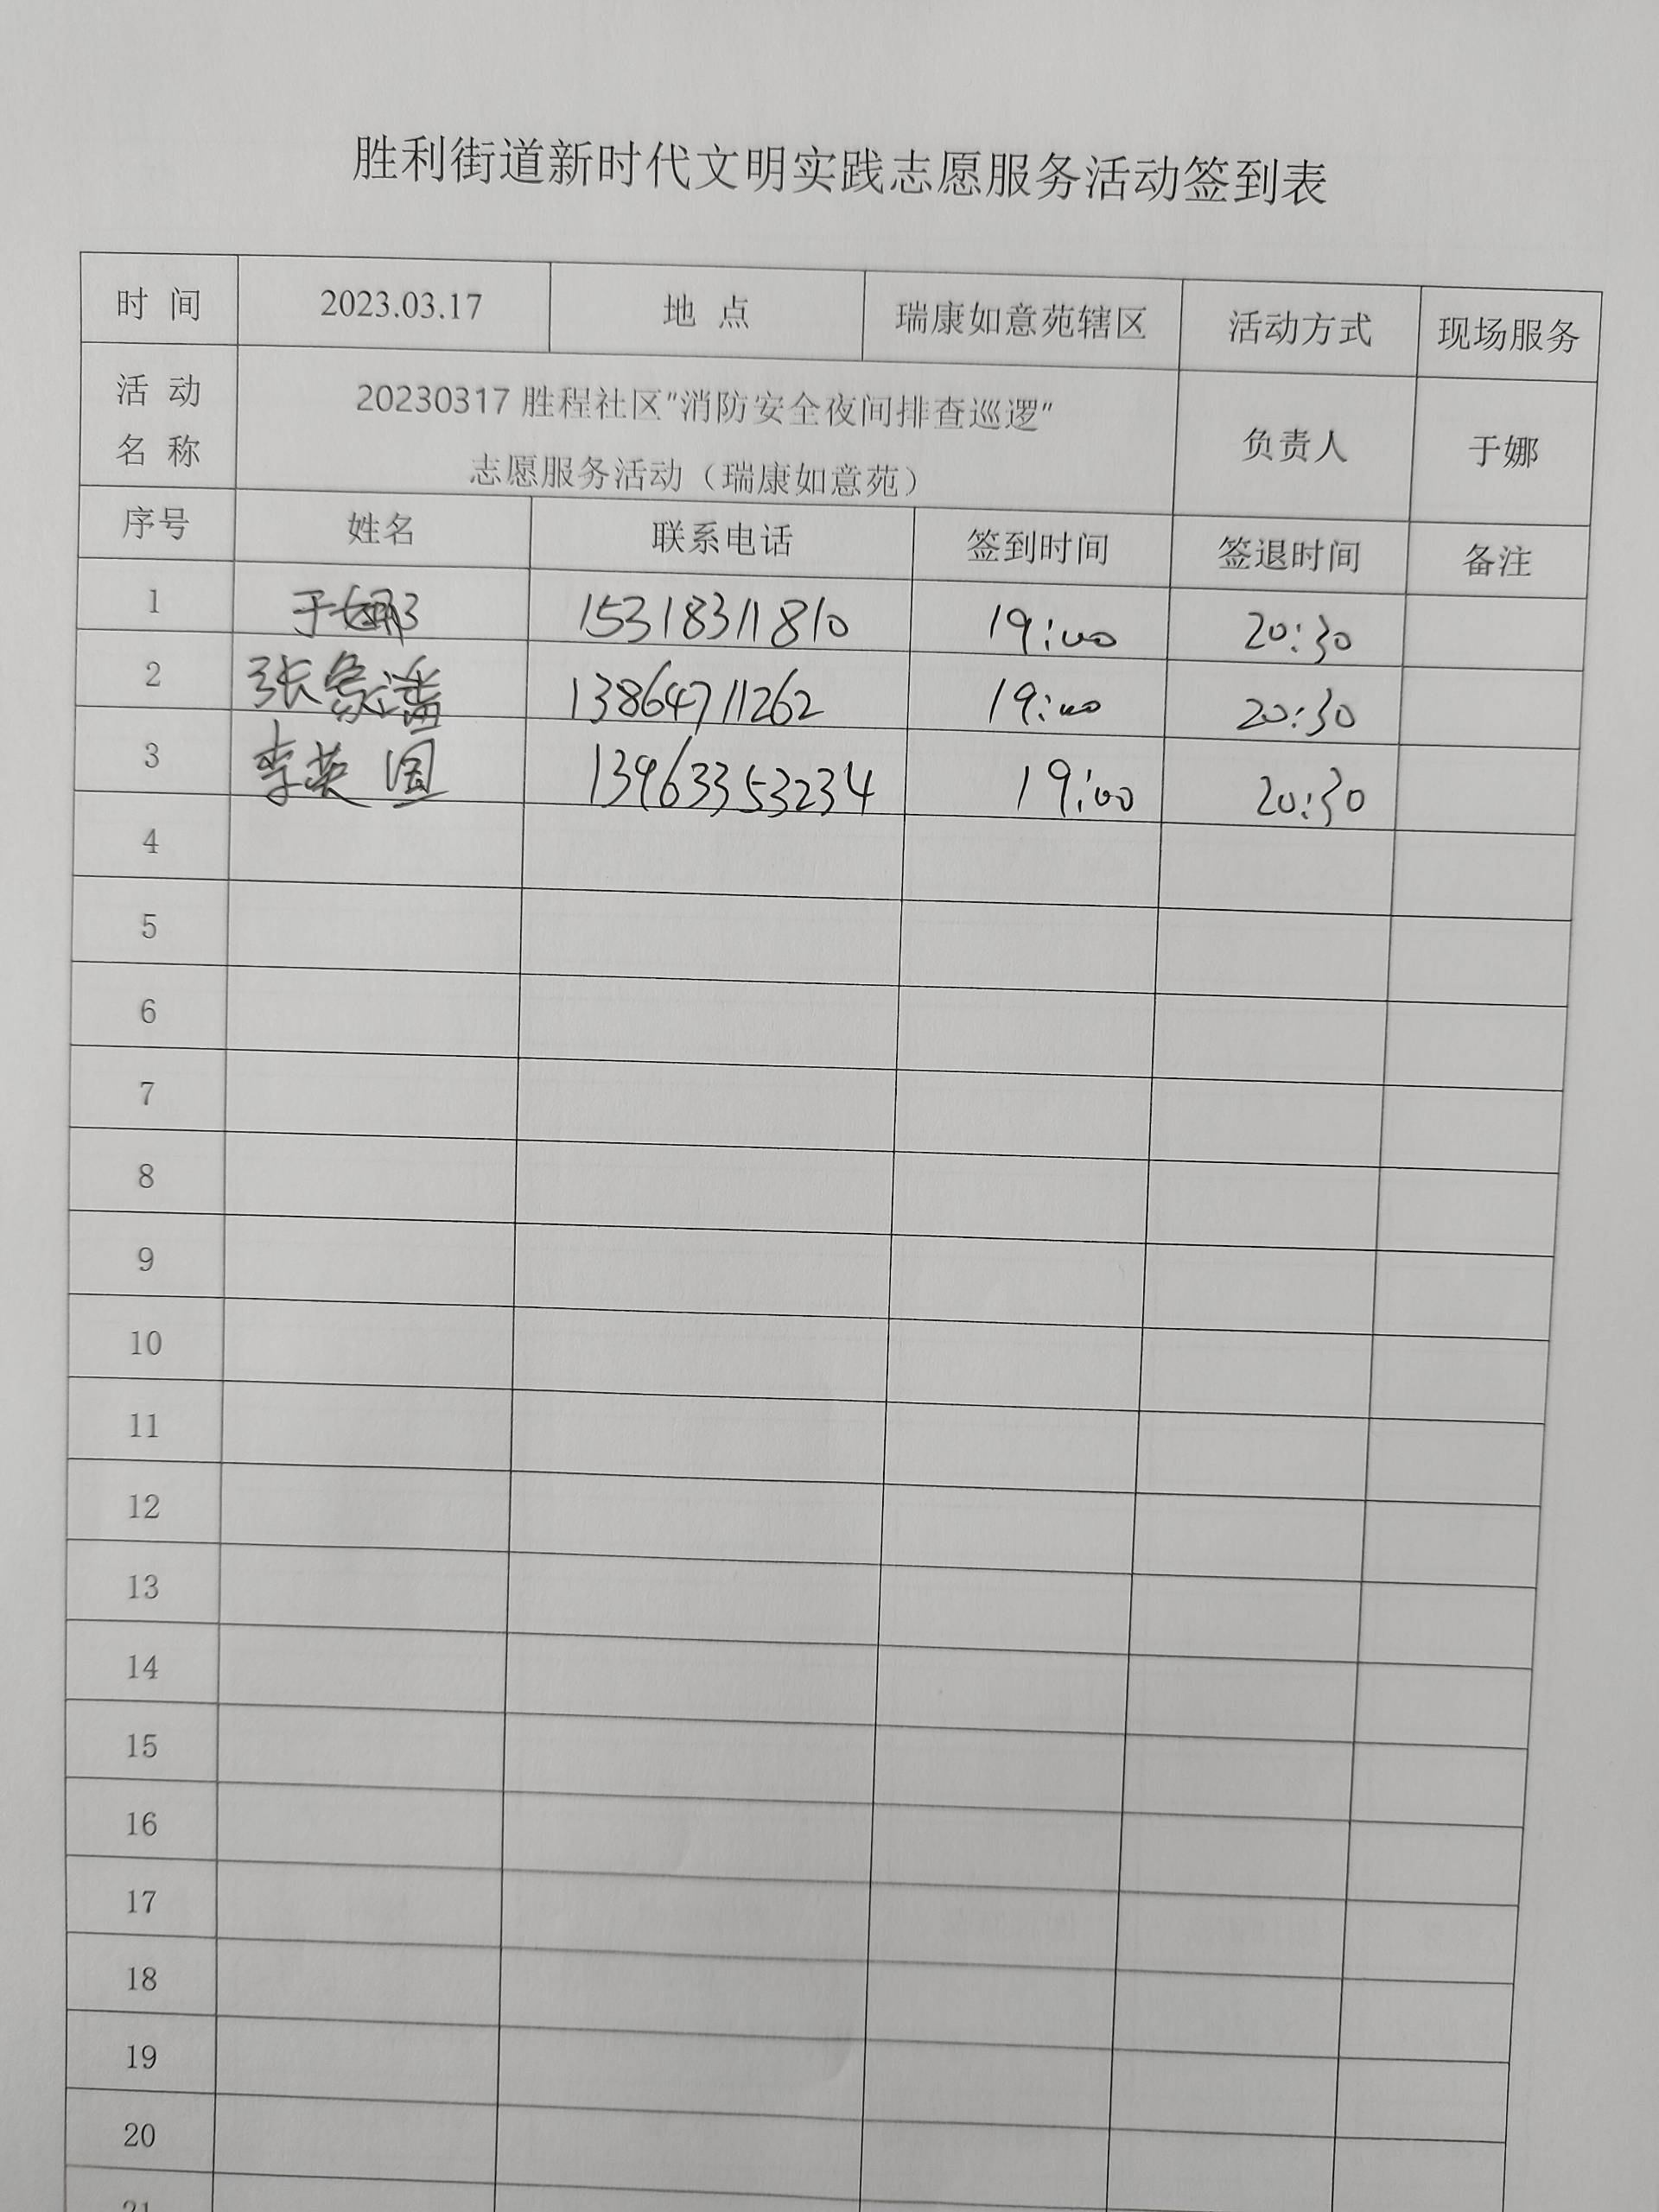 胜利街道新时代文明实践志愿服务活动签到表
时 间 2023.03.17 地 点 瑞康如意苑辖区 活动方式 现场服务
活 动 名 称 20230317 胜程社区"消防安全夜间排查巡逻" 负责人 于娜
志愿服务活动（瑞康如意苑）
序号 姓名 联系电话 签到时间 签退时间 备注
1 于娜 15318311810 19:00 20:30
2 张 13864711262 19:00 20:30
3 李英国 13963353234 19:00 20:30
4
5
6
7
8
9
10
11
12
13
14
15
16
17
18
19
20
21